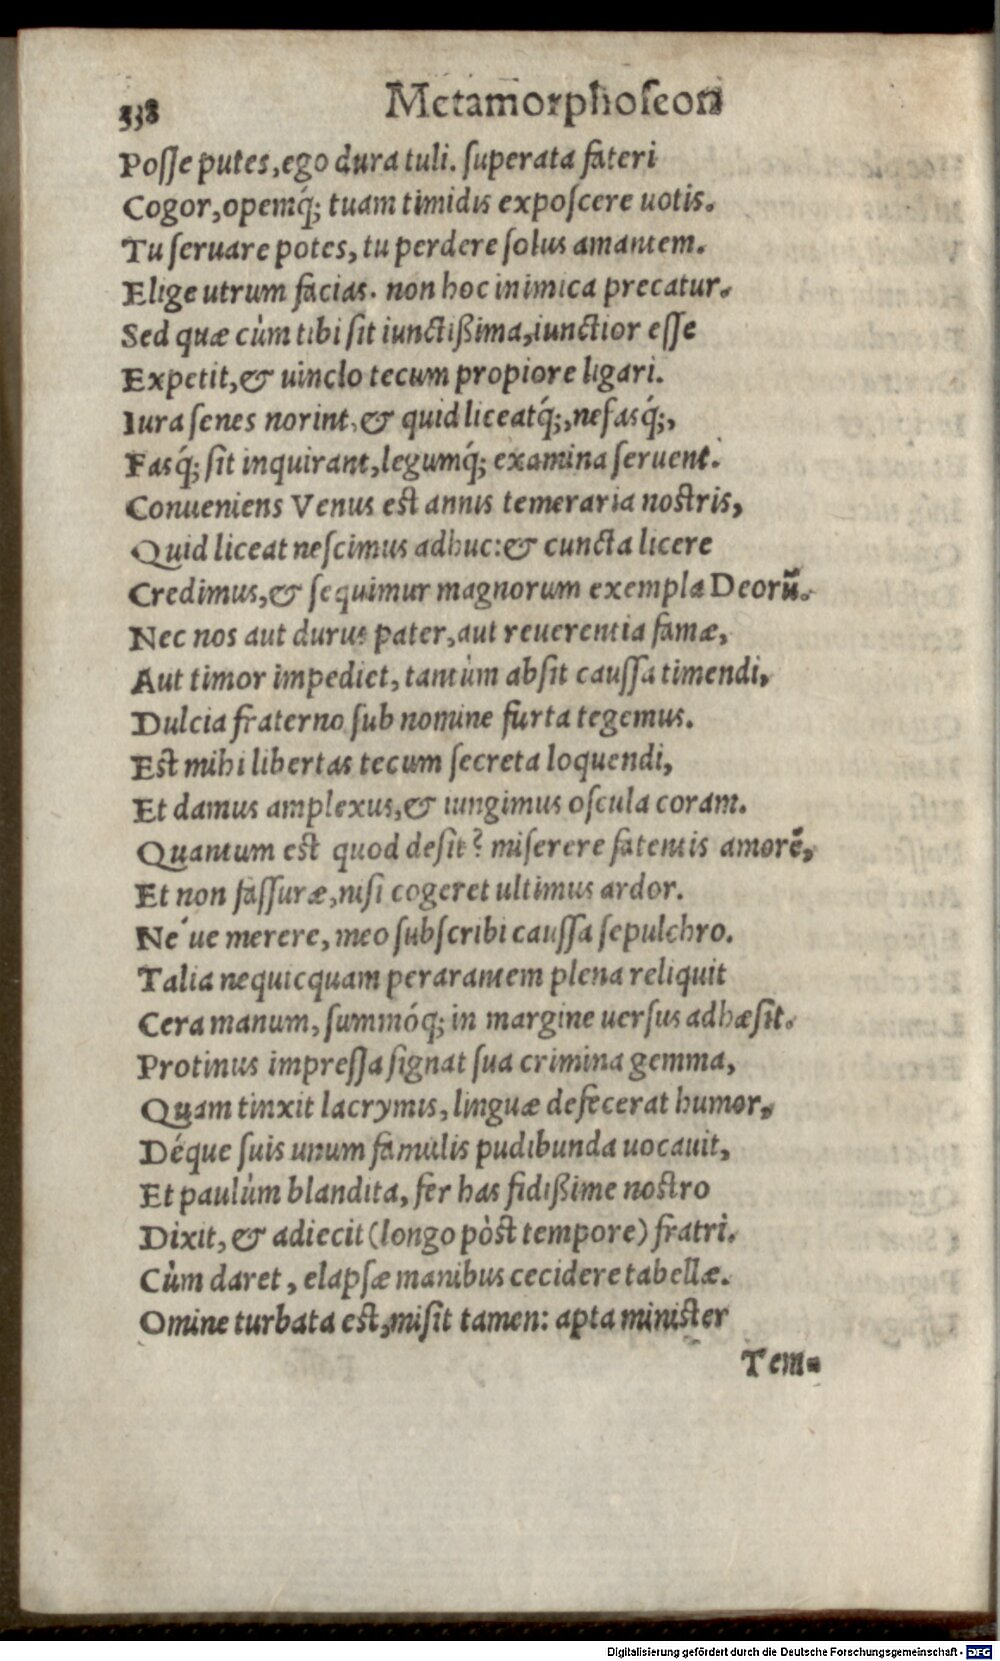 338 Metamorphoſeon
Poſſe putes, ego dura tuli. ſuperata fateri
Cogor, opemq́; tuam timidis expoſcere uotis.
Tu ſeruare potes, tu perdere ſolus amantem.
Elige utrum facias. non hoc inimica precatur.
Sed quæ cùm tibi ſit iunctißima, iunctior eſſe
Expetit, & uinclo tecum propiore ligari.
Iura ſenes norint, & quid liceatq́;, nefasq́;,
Fasq́; ſit inquirant, legumq́; examina ſeruent.
Conueniens Venus est annis temeraria nostris,
Quid liceat neſcimus adhuc: & cuncta licere
Credimus, & ſequimur magnorum exempla Deorū.
Nec nos aut durus pater, aut reuerentia famæ,
Aut timor impediet, tantùm abſit cauſſa timendi,
Dulcia fraterno ſub nomine furta tegemus.
Est mihi libertas tecum ſecreta loquendi,
Et damus amplexus, & iungimus oſcula coram.
Quantum est quod deſit? miſerere fatentis amorē,
Et non faſſuræ, niſi cogeret ultimus ardor.
Né ue merere, meo ſubſcribi cauſſa ſepulchro.
Talia nequicquam perarantem plena reliquit
Cera manum, ſummóq; in margine uerſus adhæſit.
Protinus impreſſa ſignat ſua crimina gemma,
Quam tinxit lacrymis, linguæ defecerat humor,
Déque ſuis unum famulis pudibunda uocauit,
Et paulùm blandita, fer has fidißime nostro
Dixit, & adiecit (longo pòst tempore) fratri.
Cùm daret, elapſæ manibus cecidere tabellæ.
Omine turbata est, miſit tamen: apta minister
Tem-
Digitalisierung gefördert durch die Deutsche Forschungsgemeinschaft - DFG